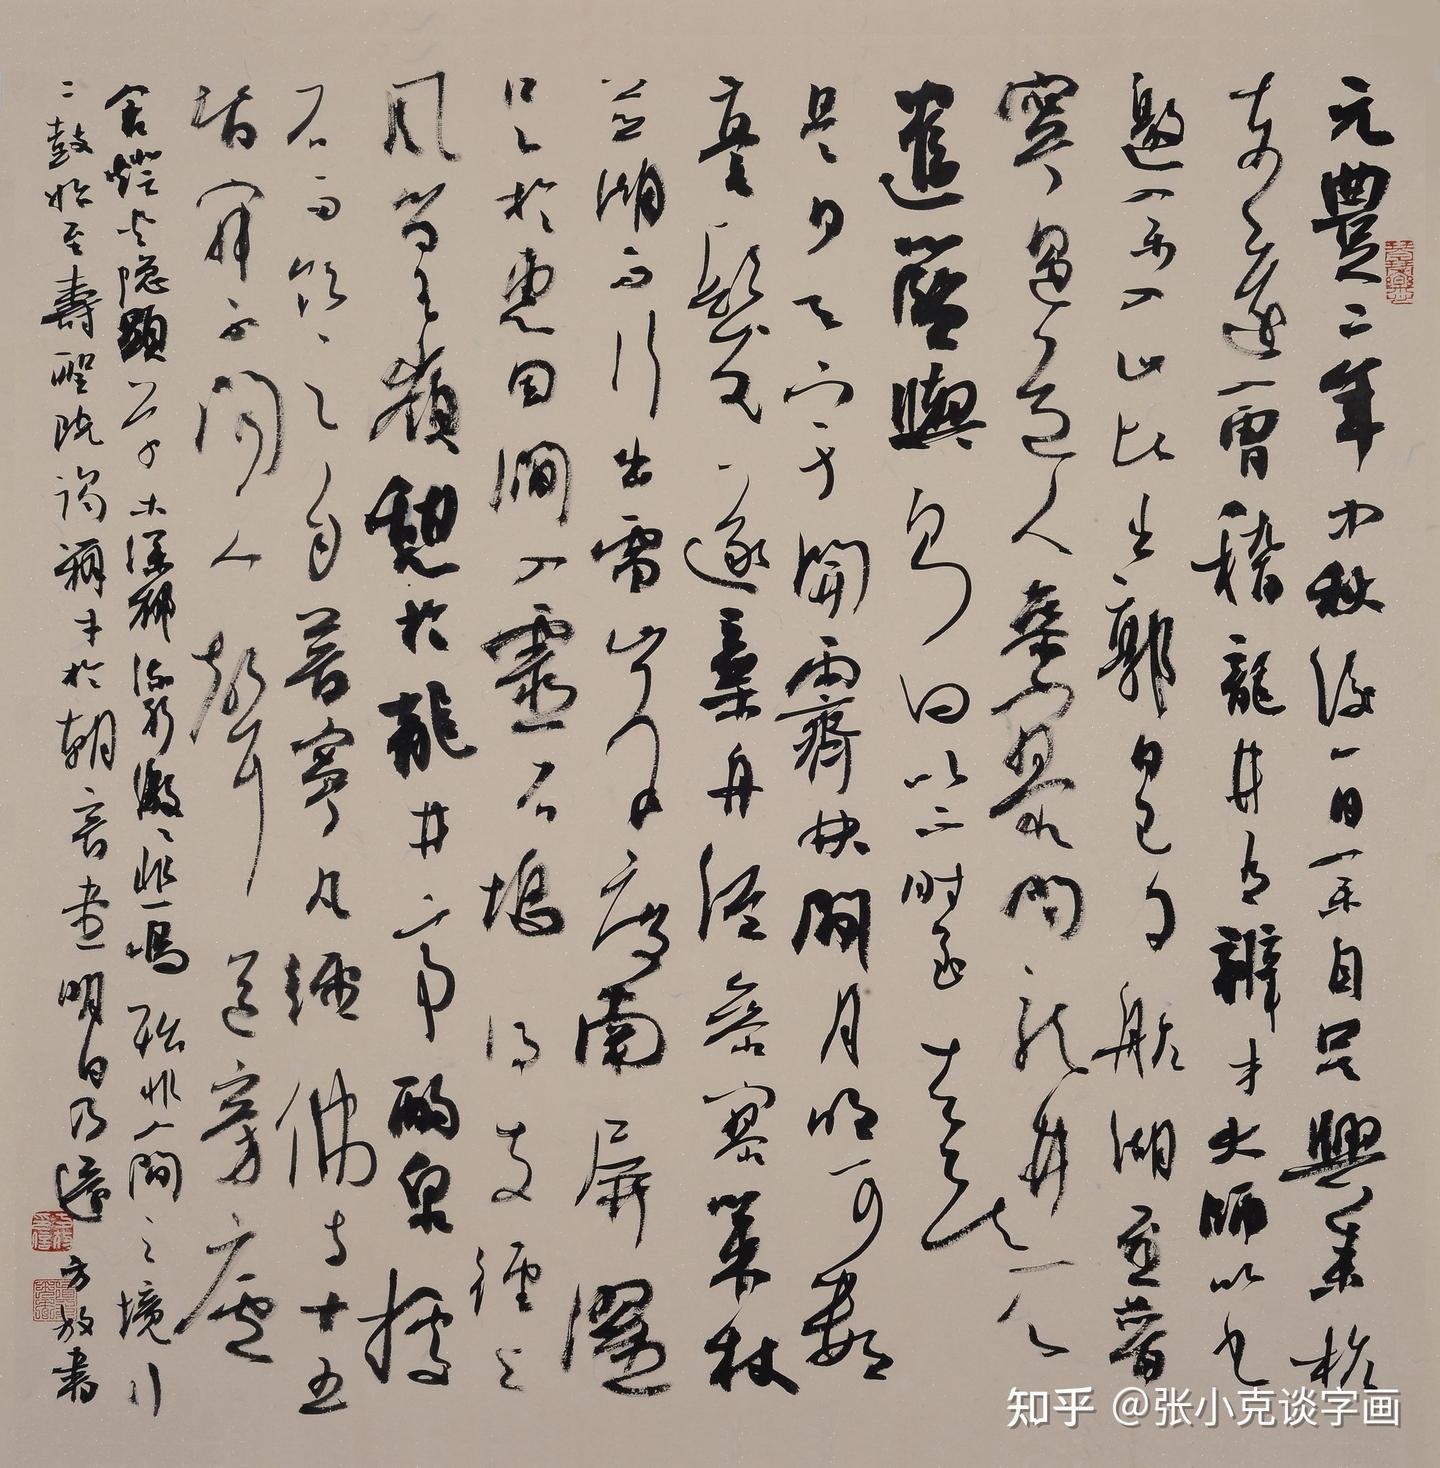 元豐二年中秋後一日余自吳興來杭
東還會稽龍井有辨才大師以書
邀入余入山比出郭日已夕航湖至普
寧遇道人參寥問龍井所
遣籃輿則曰以不時至去矣
是夕天宇開霽林間月明可數
毫髮遂棄舟從參寥策杖
並湖而行出雷峰度南屏濯
足於惠因澗入靈石塢得支徑上
風篁嶺憩於龍井亭酌泉據
石而飲之自普寧凡經佛寺十五
皆寂不聞人聲道旁廬
舍燈火隱顯草木深鬱流水激激悲鳴殆非人間之境行
二鼓始至壽聖院謁辯才於朝音堂明日乃還 方放書
知乎 @张小克谈字画